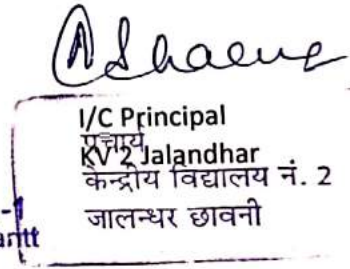 I/C Principal
प्राचार्य
KV 2 Jalandhar
केन्द्रीय विद्यालय नं. 2
जालन्धर छावनी